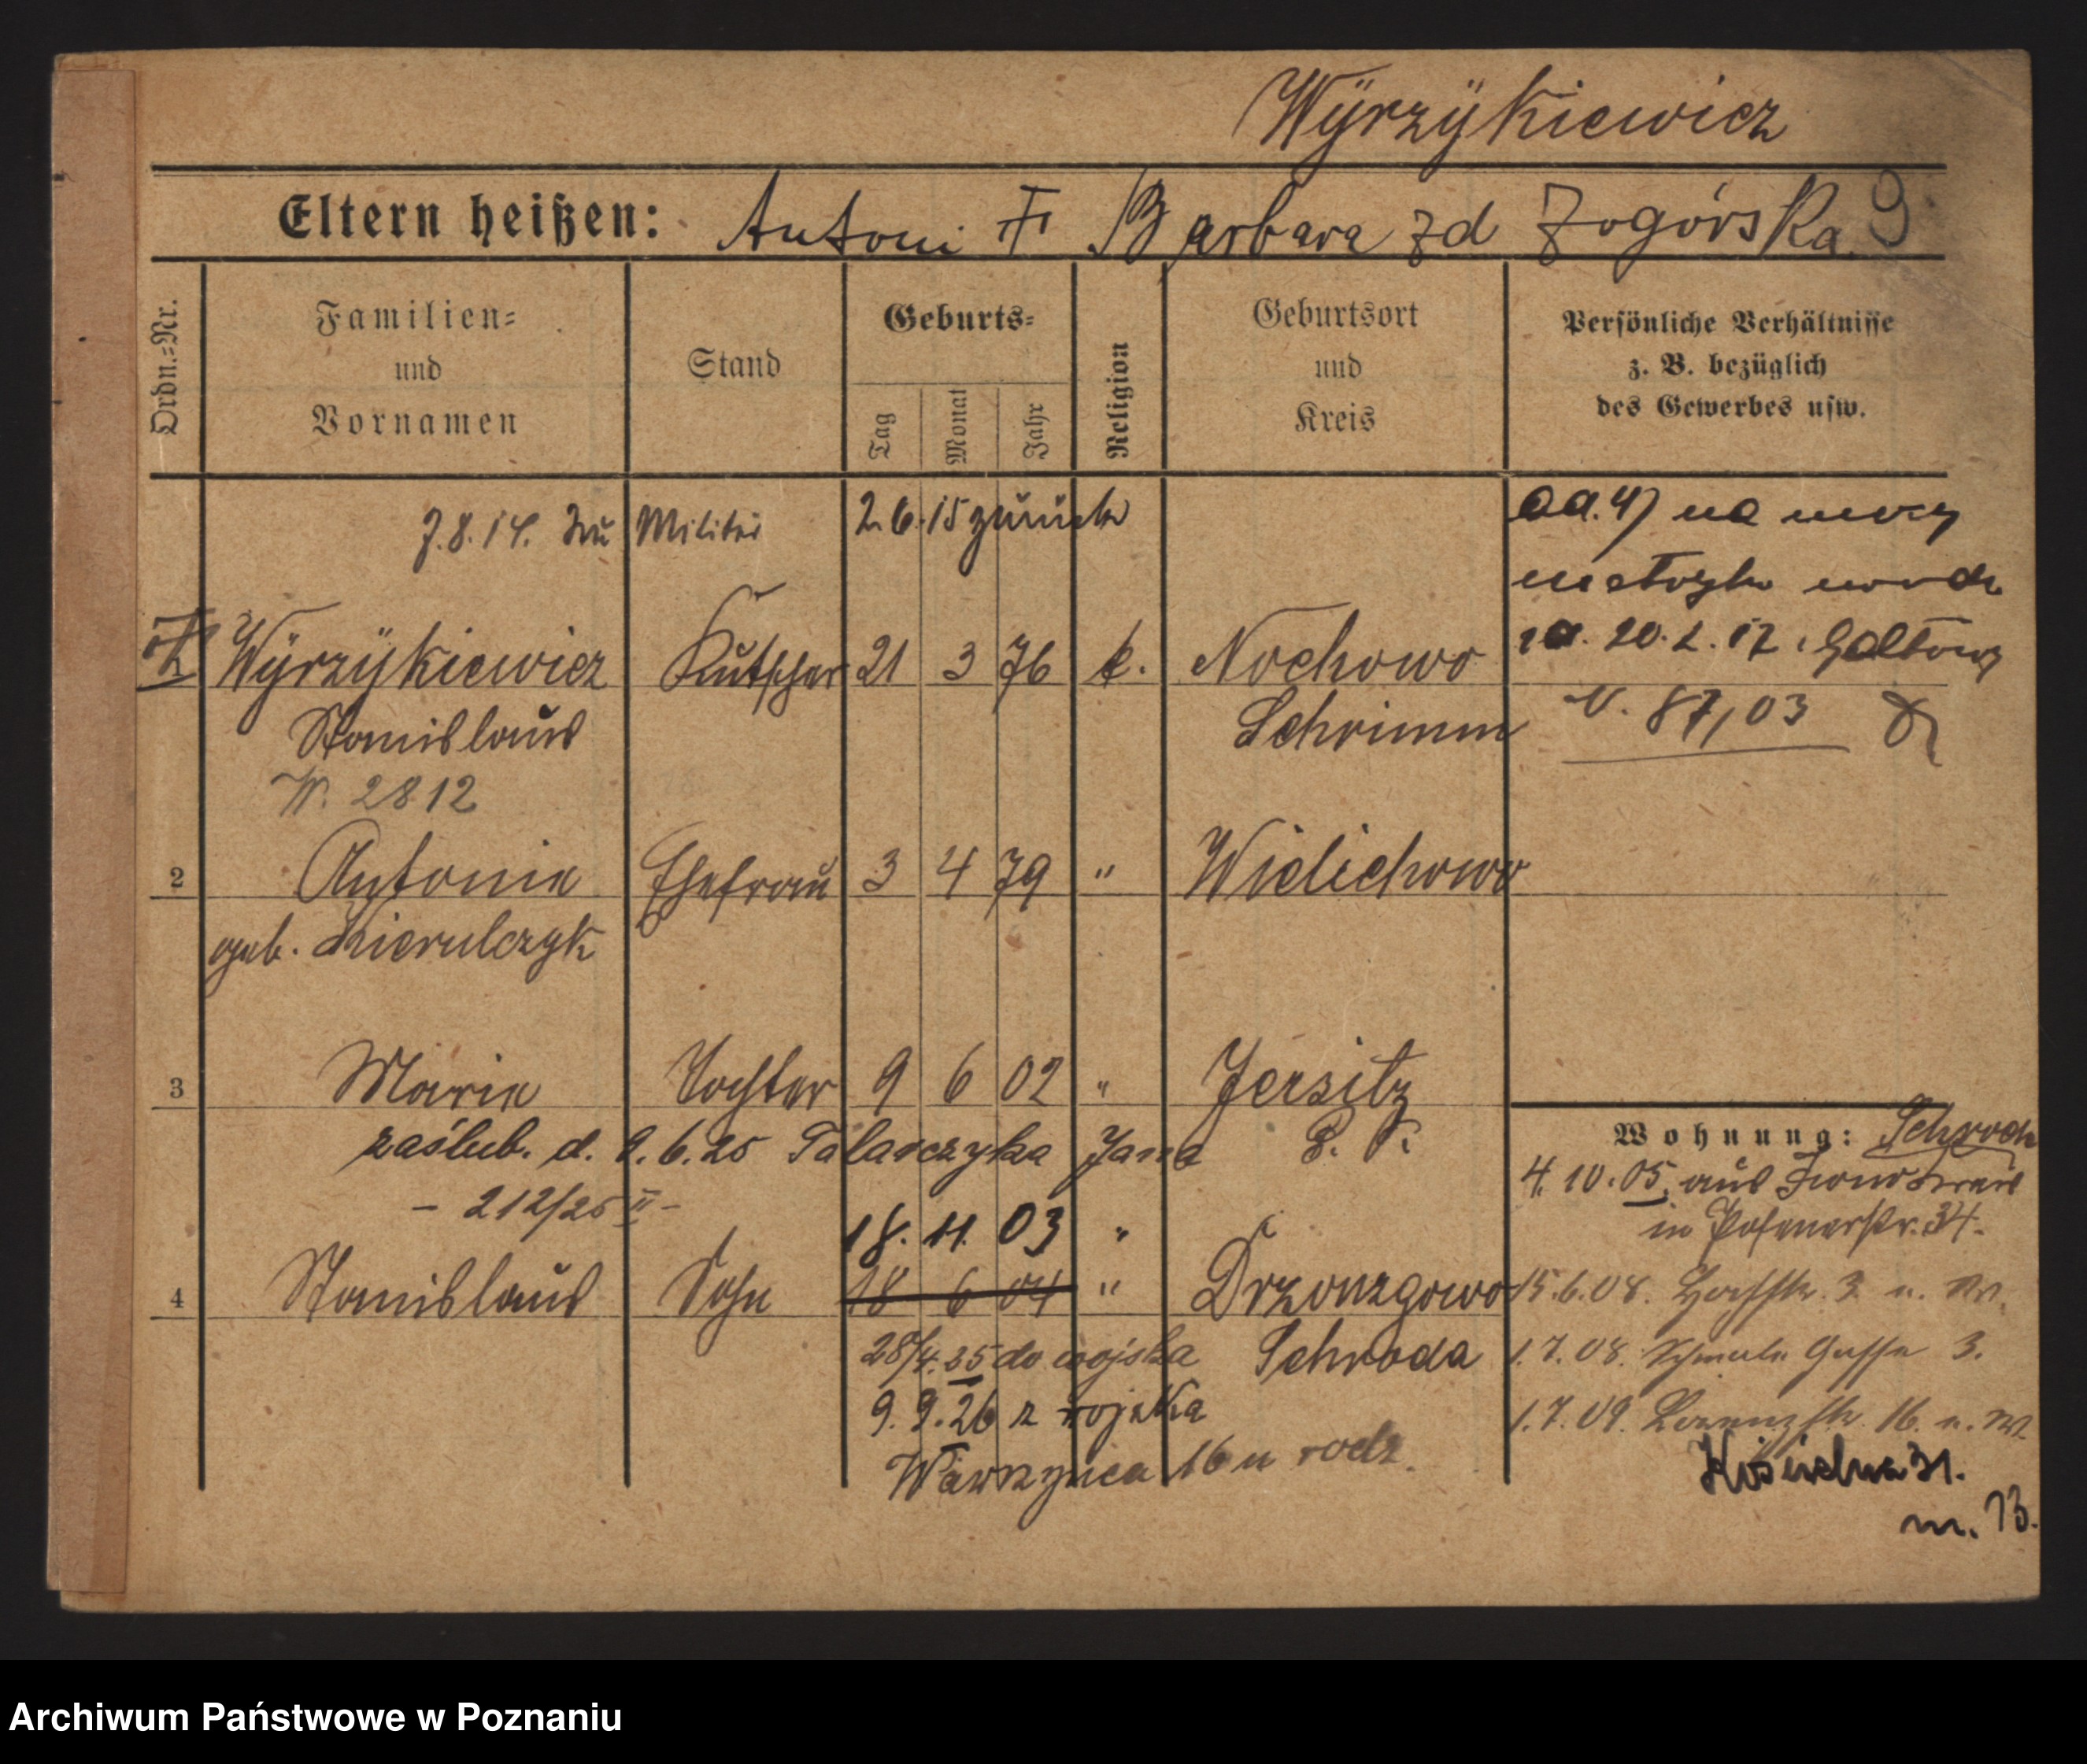 Wÿrzÿkiewicz
Eltern heißen: Antoni Barbara zd Zogórska 9
Ordn.=Nr.
Familien=
und
Vornamen
Stand
Geburts=
Tag
Monat
Jahr
Religion
Geburtsort
und
Kreis
Persönliche Verhältnisse
z. B. bezüglich
des Gewerbes usw.
7.8.14. zu Militär 2.6.15 zurück
ad. 4) na mocy
metryki urodz
20.2.17
Wÿrzÿkiewicz Kutscher 21 3 76 k. Nochowo
Stanislaus Schrimm V. 87/03
W. 2812
2 Antonie Ehefrau 3 4 79 " Wielichowo
geb. Kierulczyk
3 Marie Tochter 9 6 02 " Jersitz
zaślub. d. 9.6.25 Talarczyka Jana P. K.
- 212/25 II -
Wohnung: Schroda
4.10.05. aus
in Posenerstr. 34.
18. 11. 03 "
4 Stanislaus Sohn 18 6 04 " Drzonzgowo
Schroda
15.6.08. 3
1.7.08. Schmale Gasse 3.
1.7.09. Lorenzstr. 16.
28/4.25 do wojska
9.9.26 z wojska
Wawrzyńca 16 u rodz.
31.
m. 13.
Archiwum Państwowe w Poznaniu